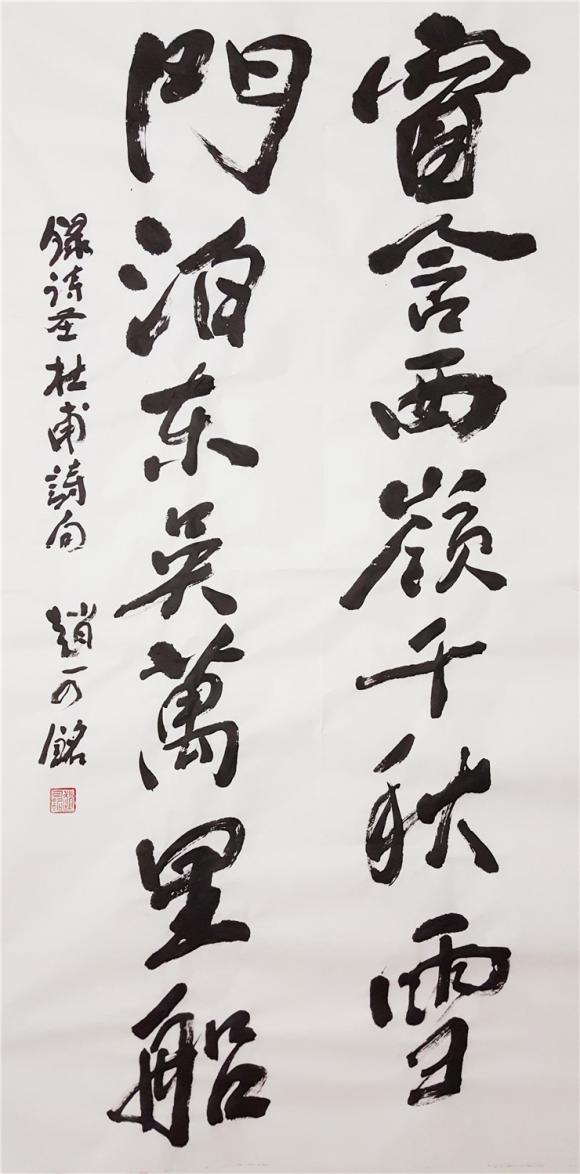 窗含西嶺千秋雪
門泊东吴萬里船
録诗圣杜甫詩句 趙一可銘